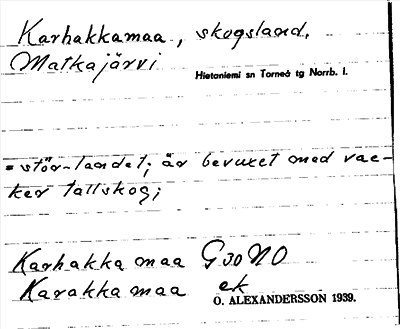 Karhakkamaa, skogsland.
Matkajärvi
Hietaniemi sn Torneå tg Norrb. l.
= stör-landet; är bevuxet med vac-
ker tallskog;
Karhakka maa G30 NO
Karakka maa ek
O. ALEXANDERSSON 1939.